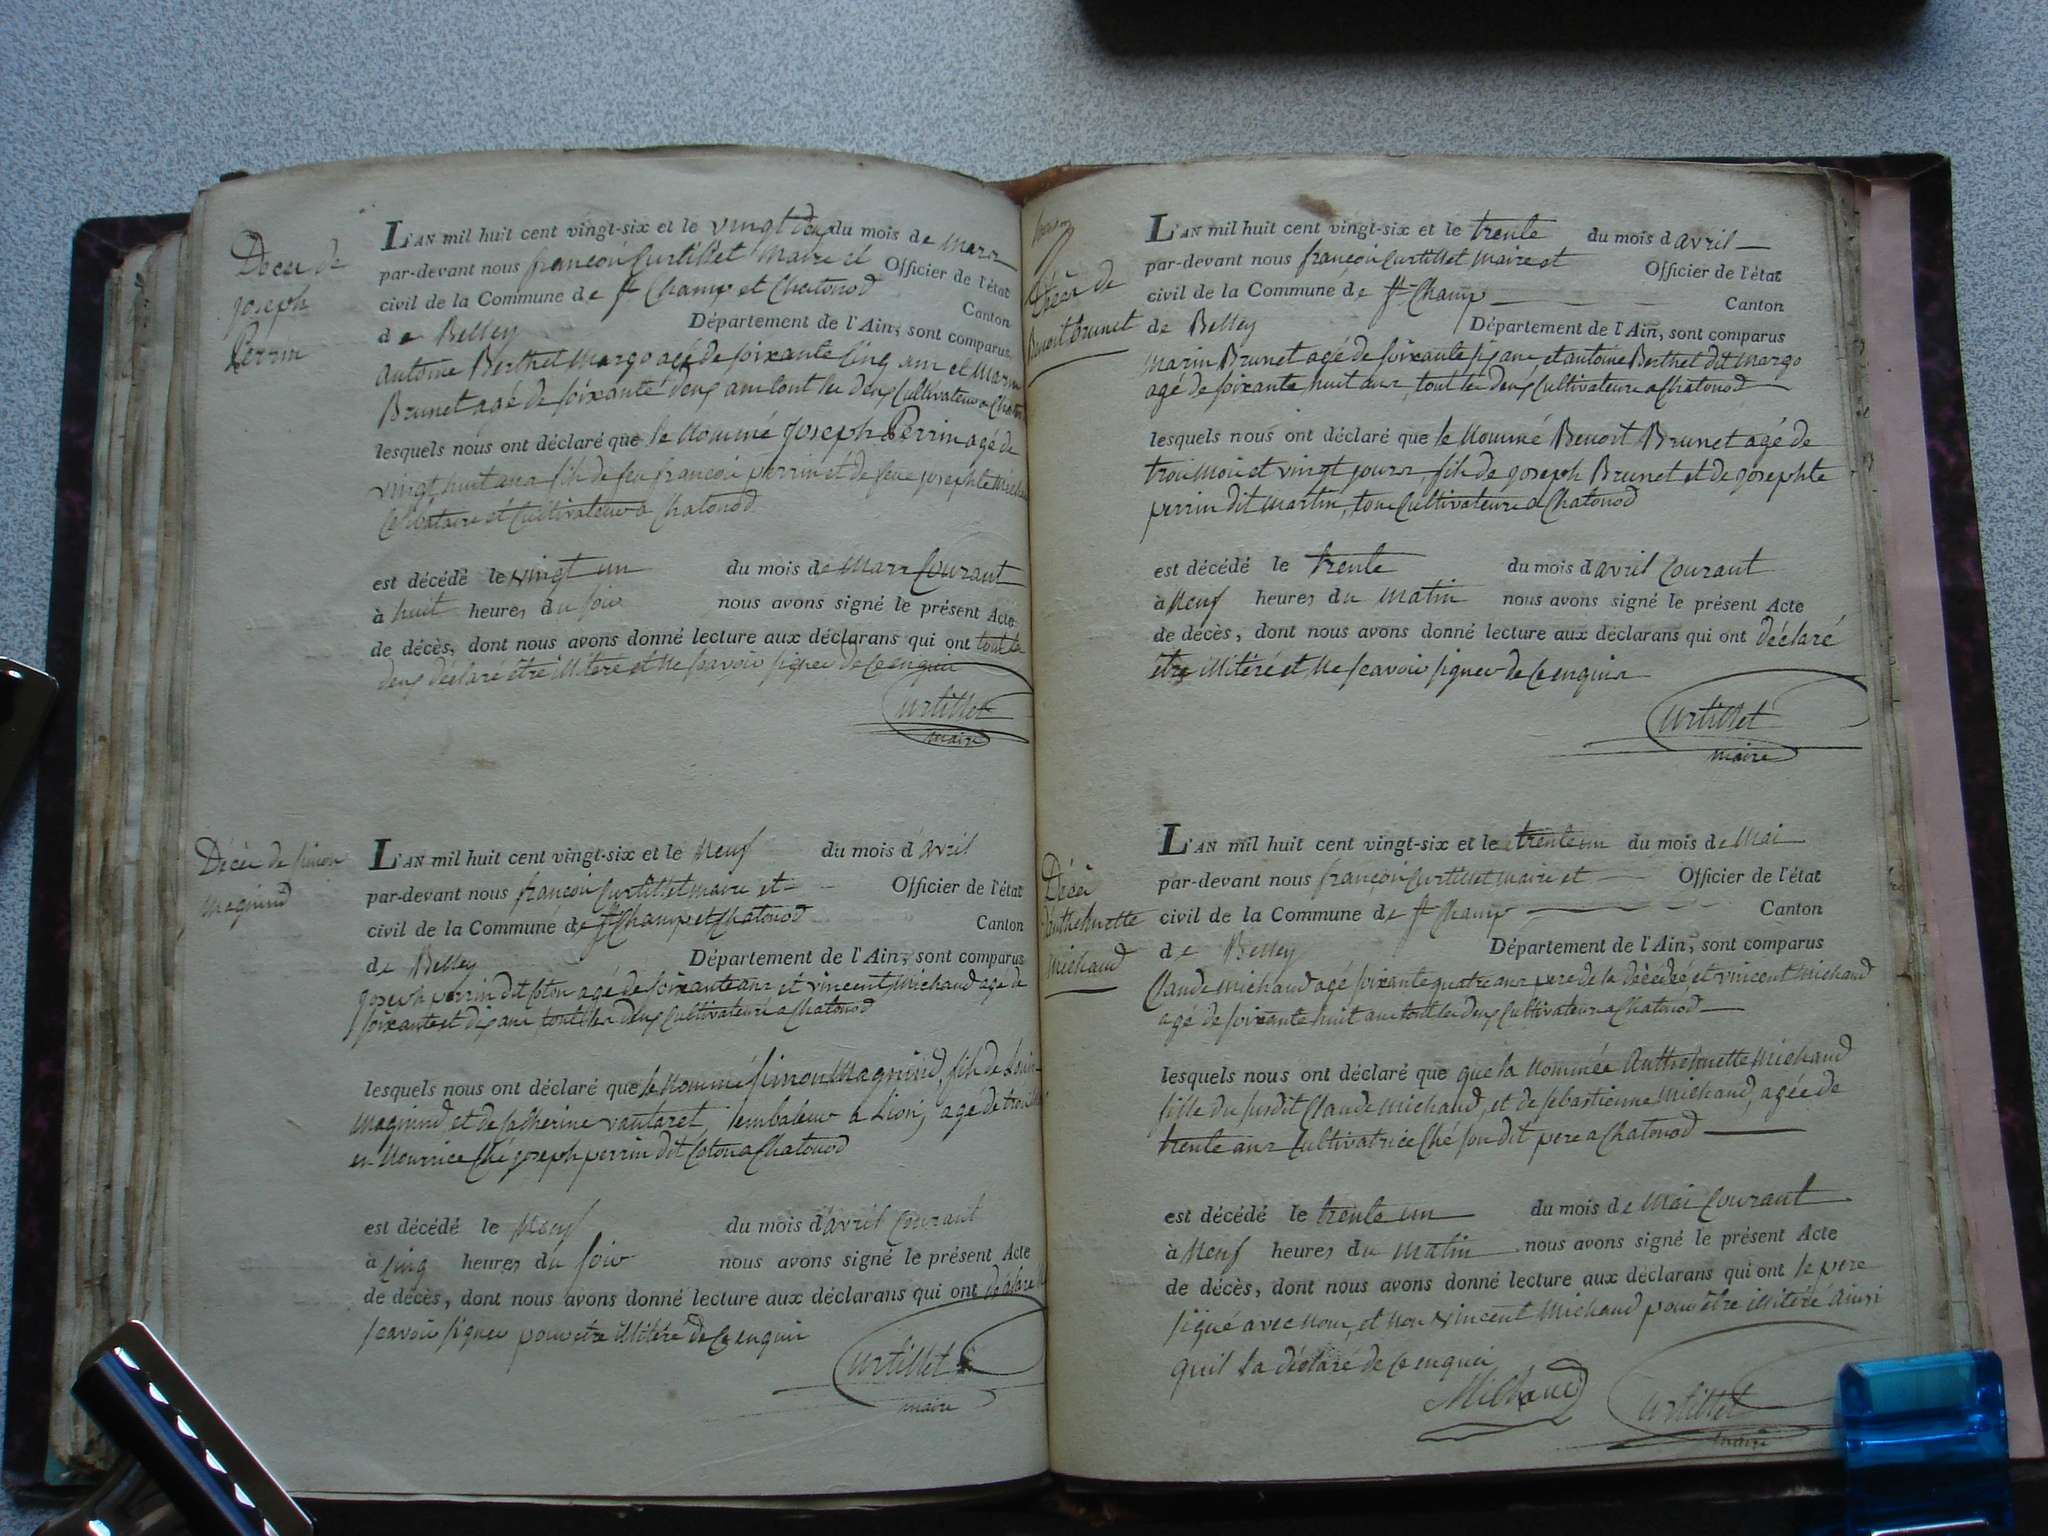 Décès de
joseph
Perrin
L'AN mil huit cent vingt-six et le vingt deux du mois de Mars
par-devant nous françois Curtillet Maire et Officier de l'état
civil de la Commune de St Champ et Chatonod Canton
de Belley Département de l'Ain, sont comparus
antoine Berthet Margo agé de soixante Cinq ans et Marin
Brunet agé de soixante deux ans tout les deux Cultivateurs a
lesquels nous ont déclaré que le Nommé joseph Perrin agé de
vingt huit ans fils de feu françois perrin et de feue josephte
Celibataire et Cultivateur a Chatonod
est décédé le vingt un du mois de Mars Courant
à huit heures du soir nous avons signé le présent Acte
de décès, dont nous avons donné lecture aux déclarans qui ont tout les
deux déclaré être illitéré et Ne scavoir signer de Ce enquis
Curtillet
maire
Décès de simon
magnind
L'AN mil huit cent vingt-six et le Neuf du mois d'avril
par-devant nous françois Curtillet maire et Officier de l'état
civil de la Commune de St Champ et Chatonod Canton
de Belley Département de l'Ain, sont comparus
joseph perrin dit Coton agé de soixante ans et vincent Michaud agé de
soixante et dix ans tout les deux Cultivateurs a Chatonod
lesquels nous ont déclaré que le Nommé simon Magnind, fils de
magnind, et de Catherine vautaret, embaleur a Lion, agé de
en Nourrice Ché joseph perrin dit Coton a Chatonod
est décédé le Neuf du mois d'avril Courant
à Cinq heures du soir nous avons signé le présent Acte
de décès, dont nous avons donné lecture aux déclarans qui ont déclaré
scavoir signer pour etre illitéré de Ce enquis
Curtillet
maire
Décès de
Benoit Brunet
L'AN mil huit cent vingt-six et le trente du mois d'avril
par-devant nous françois Curtillet Maire et Officier de l'état
civil de la Commune de St Champ Canton
de Belley Département de l'Ain, sont comparus
Marin Brunet agé de soixante six ans et antoine Berthet dit Margo
agé de soixante huit ans, tout les deux Cultivateurs a Chatonod
lesquels nous ont déclaré que le Nommé Benoit Brunet agé de
trois Mois et vingt jours, fils de joseph Brunet et de josephte
perrin dit Martin, tous Cultivateurs a Chatonod
est décédé le trente du mois d'avril Courant
à Neuf heures du Matin nous avons signé le présent Acte
de décès, dont nous avons donné lecture aux déclarans qui ont déclaré
être illitéré et Ne scavoir signer de Ce enquis
Curtillet
maire
Décès
d'anthelmette
Michaud
L'AN mil huit cent vingt-six et le trente un du mois de Mai
par-devant nous françois Curtillet maire et Officier de l'état
civil de la Commune de St Champ Canton
de Belley Département de l'Ain, sont comparus
Claude Michaud agé soixante quatre ans pere de la décédée et vincent Michaud
agé de soixante huit ans tout les deux Cultivateurs a Chatonod
lesquels nous ont déclaré que que la Nommée anthelmette Michaud
fille du susdit Claude Michaud, et de sébastienne Michaud, agée de
trente ans Cultivatrice Ché son dit pere a Chatonod
est décédé le trente un du mois de Mai Courant
à Neuf heures du Matin nous avons signé le présent Acte
de décès, dont nous avons donné lecture aux déclarans qui ont le pere
signé avec nous, et non vincent Michaud pour être illitéré Ainsi
quil La déclaré de Ce enquis
Michaud Curtillet
maire